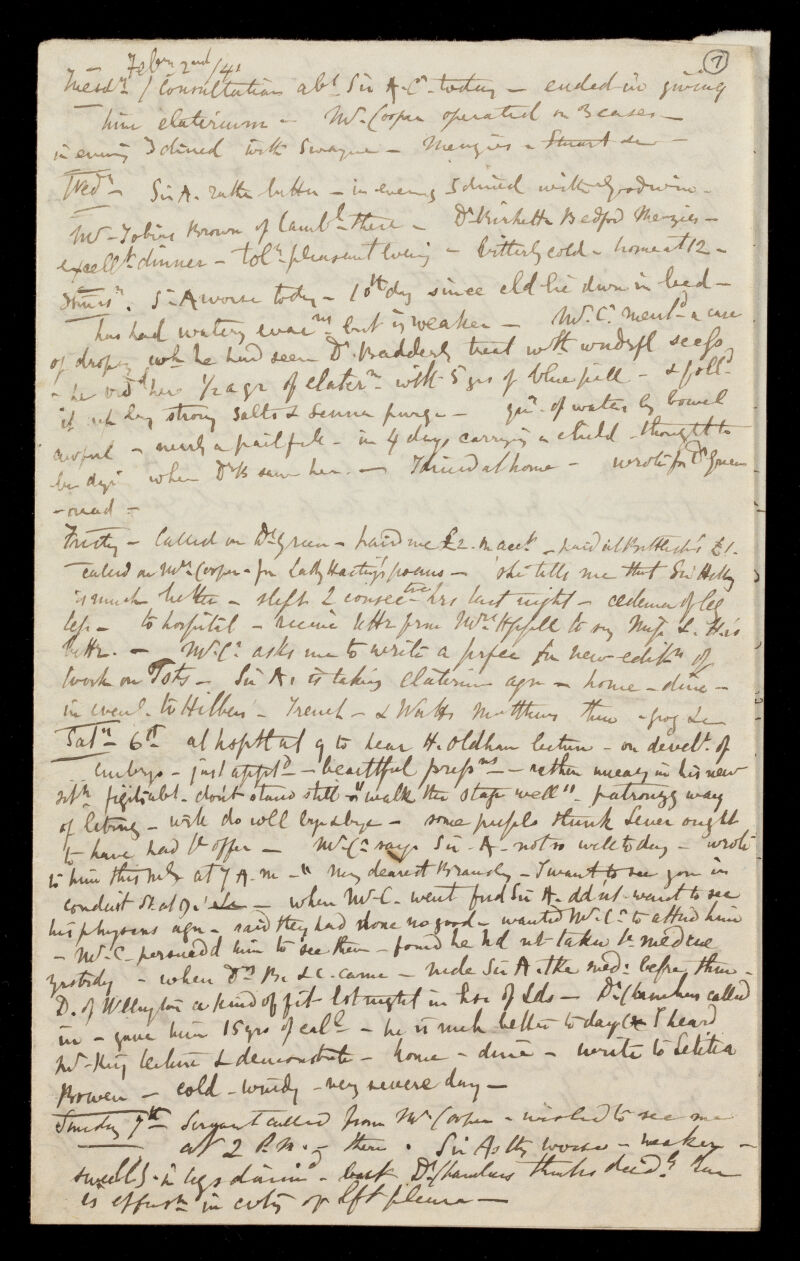 7
Feby 2nd /41
Tuesdy / Consultation abt Sir A.Cr today – ended in giving
him elaterium – Mr Cooper operated on 3 cases –
in evening I dined with Swayne – Menzies – Stuart &c –
Wedy – Sir A. rather better – in evening I dined with Goodwin –
Mr Tobias Brown of Cambe there – Dr Birkett Bedford Menzies –
excellt dinner – tole pleasant evening – bitterly cold – home at 12 –
Thursy. Sr A worse today – 10th day since he lie down in bed –
has had watery evacns but is weaker – Mr Cr mentd a case
of dropsy wh he had seen Dr Badderly treat with wndrfl success
– he ordd her 1/2 a gr of elaterm with 5 grs of blue pill – & folld
it up by strong salts & senna purge – of water by bowel
awful – nearly a pail full – in 4 days carrying a child – thought to
be dying when Dr B saw her. – I dined at home – wrote for Dr Green
Friday – Called on Dr Green – paid me £2. on acct – paid at £1.
called on Mrs Cooper – for Lady Harting's poems – she tells me that Sir Astley
is much better – slept 2 consectve hrs last night – oedema of leg
less – to hospital – receive letter from Mrs to say Miss L. H is
better. – Mr Cr asks me to write a prface for new editn of
work on Tsts – Sir A. is taking elaterium agn – home – dine –
in eveng to Hilbers' – French – & Watts Matthews there – grog &c
Saty 6th at hosptl at 9 to hear H. Oldham lecture – on develt of
embryo – just apptd – beautiful prepns – rather uneasy in his new
sitn fidgets abt – dont stand still – "walk the stage well" – patronizg way
of lecturing – will do well bye & bye – some pupils think Lever ought
to have had the offer – Mr Cr says Sir A. not so well today – wrote
to him this mg at 7 A.M – "My dearest Bransby – I want to see you in
conduit St at 9" &c – when Mr C. went fnd Sir A. ddn't want to see
his physcns agn – said they had done no good – wanted Mr Cr to attnd him
– Mr C. persuadd him to see them – found he hd nt taken the medcne
yestrdy – when Drs B. & C. came – made Sir A take med. before them –
D. of Wllngton a kind of fit lst night in hse of Lds – Dr Chambers called
in – gave him 15 grs of call – he is mch better today I heard
Mr King lecture & demonstrate – home – dine – write to Letitia
Bowen – cold – windy – very severe day –
Sunday 7th Servant called from Mr Cooper – wished to see me
at 2 P.M. – there. Sir Astly worse – weaker –
swellg in legs dimind – but Dr Chambers thinks decidly there
is effusn in cvty of lft pleura –